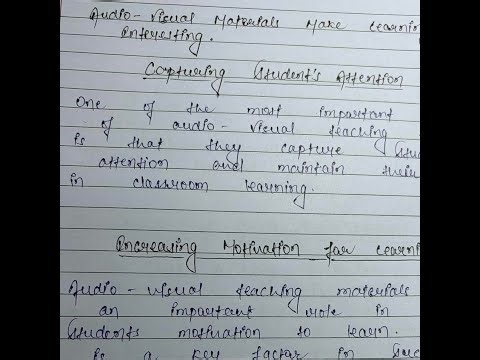 Audio-visual Materials Make learnin
Interesting.
Capturing Student's Attention
One of the most important
of audio-visual teaching
is that they capture stu
attention and maintain their
in classroom learning.
Increasing Motivation for learni
Audio-visual teaching materials
an important role in
students motivation to learn.
is a key factor in succ